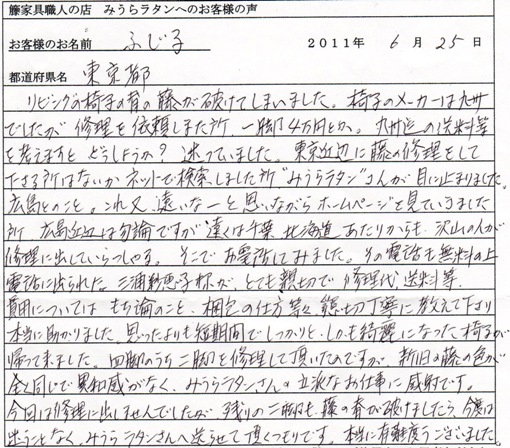 籐家具職人の店 みうらラタンへのお客様の声
お客様のお名前 ふじ子 2011年 6月 25日
都道府県名 東京都
リビングの椅子の背の藤が破けてしまいました。椅子のメーカーは九州
でしたが修理を依頼しました所、一脚4万円とか。九州迄の送料等
を考えますと どうしようか？ 迷っていました。東京近辺に藤の修理をして
下さる所はないか ネットで検索しました所"みうらラタン"さんが目に止まりました。
広島とのこと。これ又、遠いなーと思いながらホームページを見ていきました
所 広島近辺は勿論ですが遠くは千葉、北海道あたりからも、沢山の人が
修理に出していらっしゃる。そこでお電話してみました。その電話も無料の上
電話に出られた。三浦 恵子様が、とても親切で 修理代、送料等、
費用については もち論のこと、梱包の仕方等々 親切丁寧に教えて下さり
本当に助かりました。思ったよりも短期間でしっかりと、しかも綺麗になった椅子が
帰って来ました。四脚のうち二脚を修理して頂いたのですが、新旧の藤の色が
全く同じで異和感がなく、みうらラタンさんの立派なお仕事に感謝です。
今回は修理に出しませんでしたが、残りの二脚も、藤の背が破けましたら、今度は
迷うことなく、みうらラタンさんへ送らせて頂くつもりです。本当に有難度うございました。